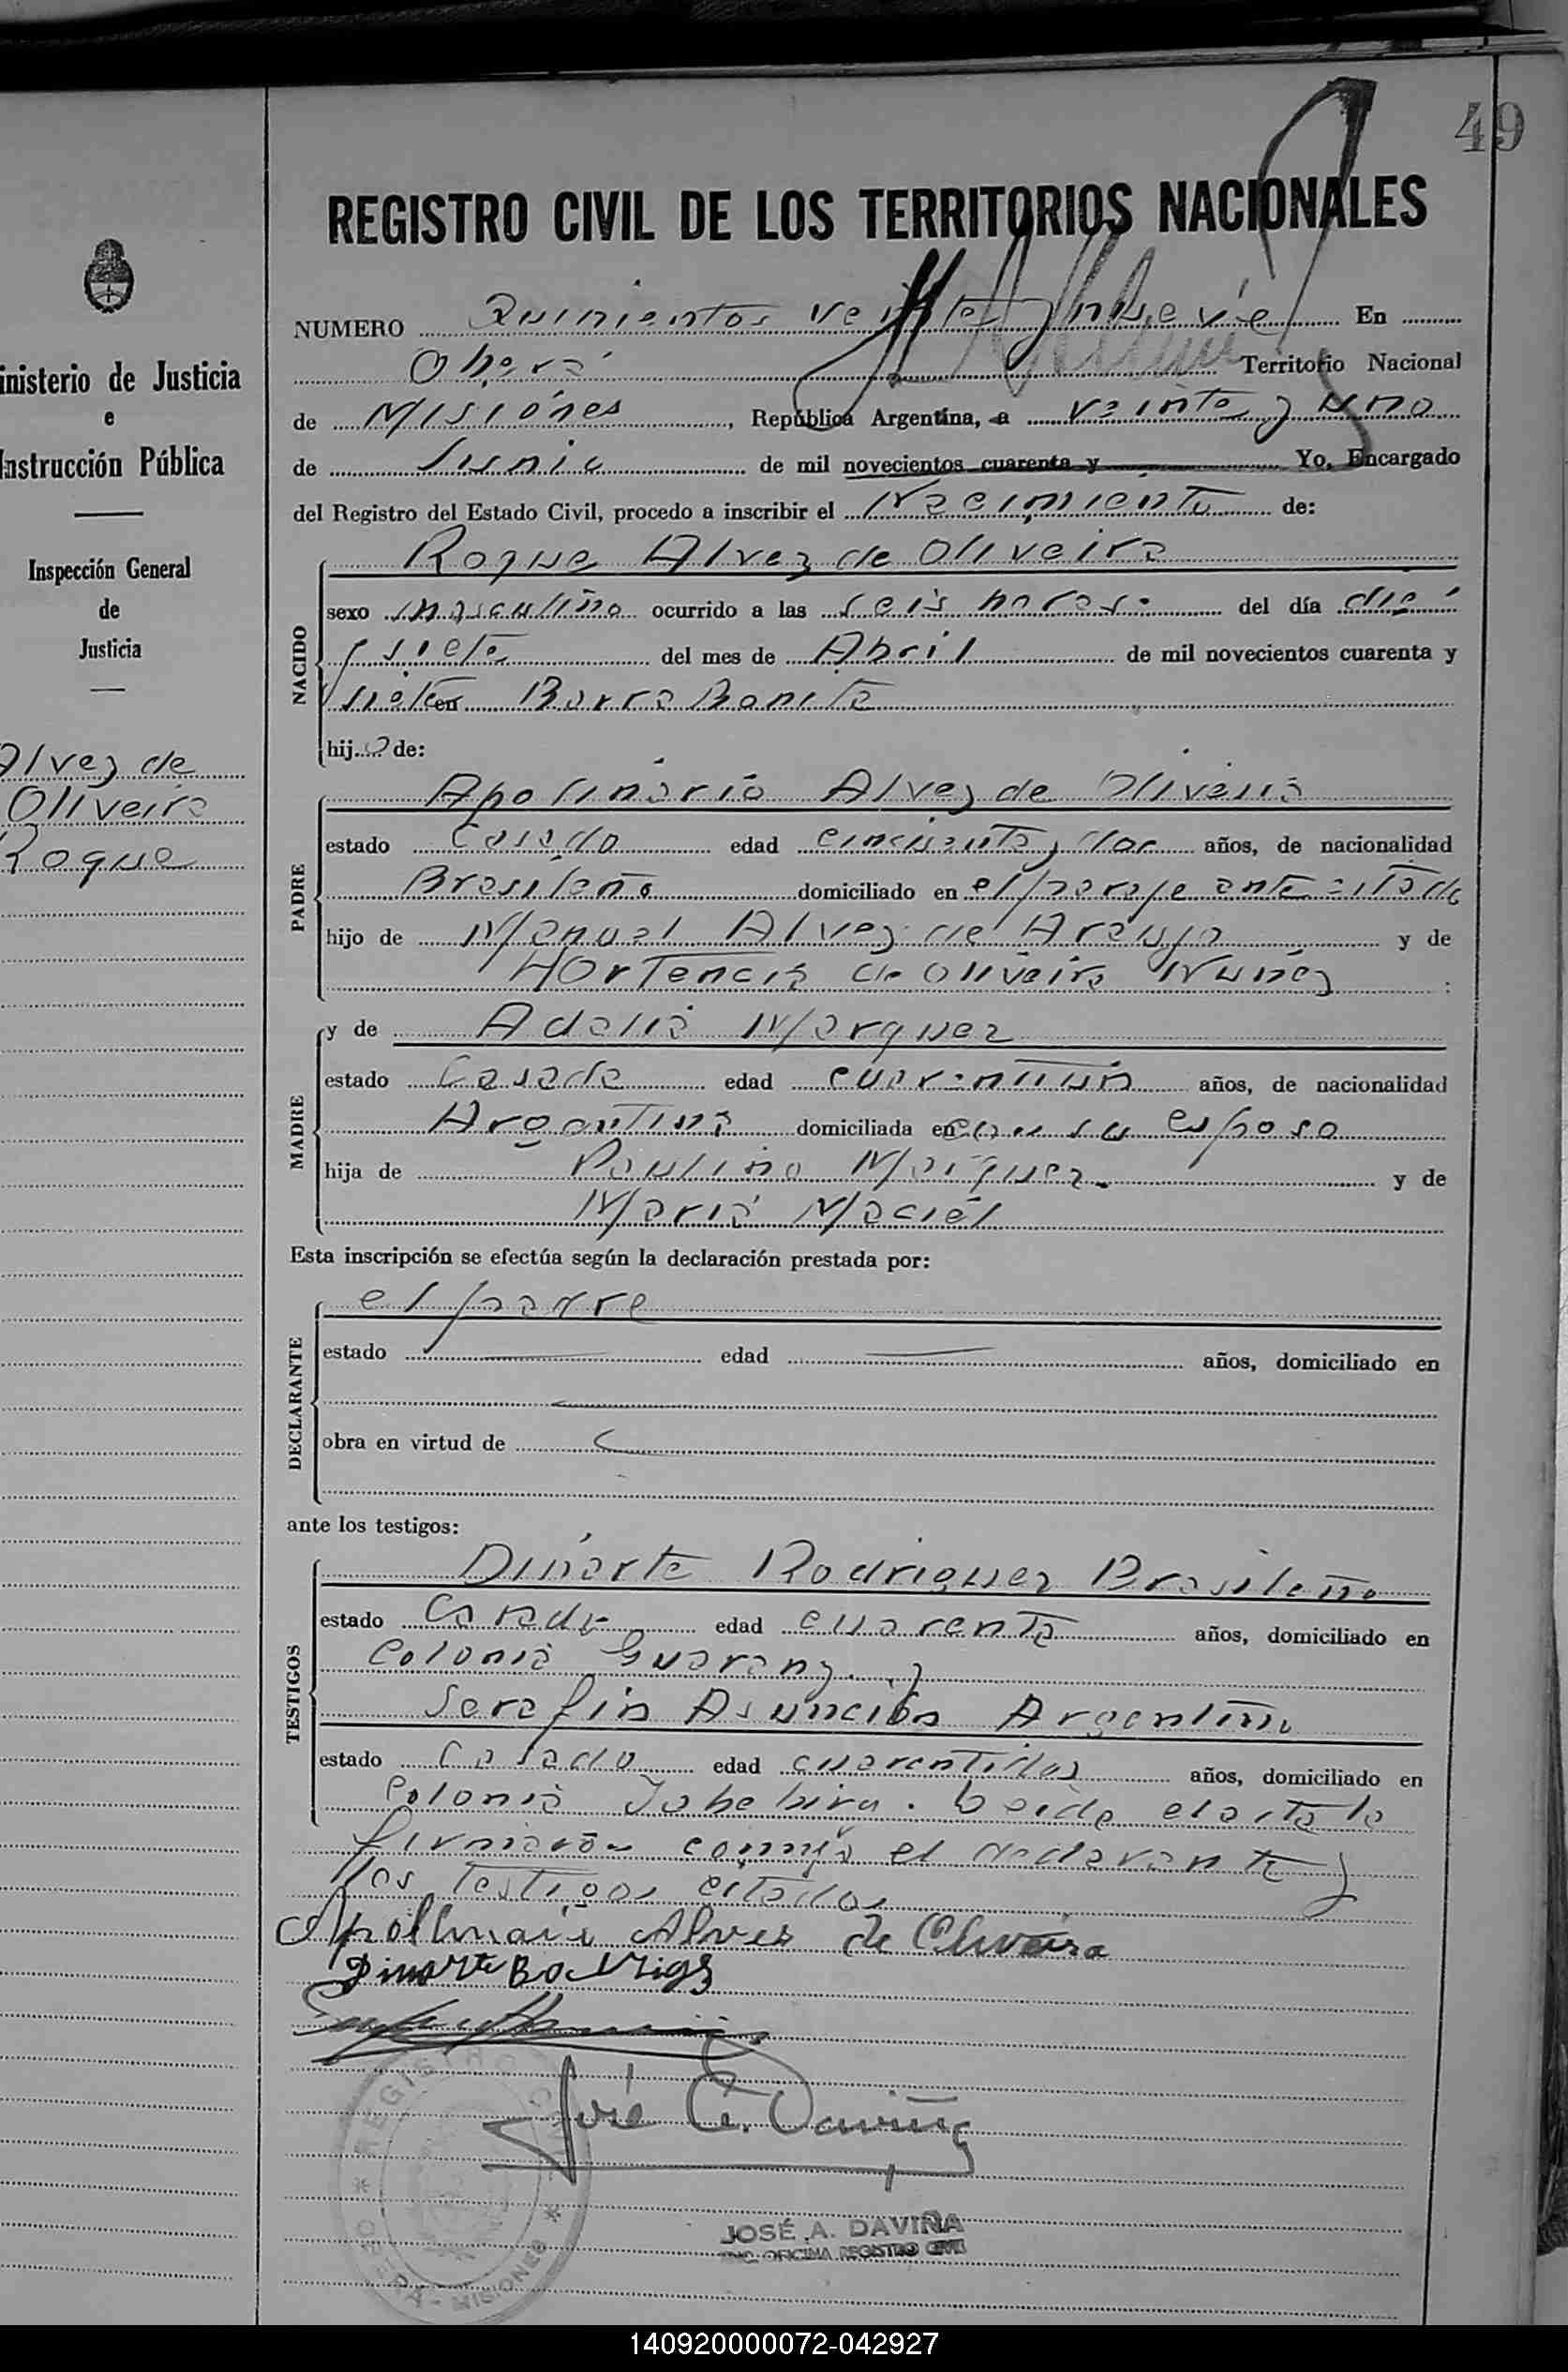 49
REGISTRO CIVIL DE LOS TERRITORIOS NACIONALES
NUMERO Quinientos veinte y nueve En
Oberá Territorio Nacional
de Misiónes, República Argentina, a veinte y uno
de Junio de mil novecientos cuarenta y Yo, Encargado
del Registro del Estado Civil, procedo a inscribir el Nacimiento de:
NACIDO
Roque Alvez de Oliveira
sexo masculino ocurrido a las seis horas. del día diez
y siete del mes de Abril de mil novecientos cuarenta y
siete en Barra Bonita
hijo de:
PADRE
Apolinario Alvez de Oliveira
estado Casado edad cincuenta y dos años, de nacionalidad
Brasileño domiciliado en el paraje ante citado
hijo de Manuel Alvez de Araujo y de
Hortencia de Oliveira Nunez
MADRE
y de Adelia Marquez
estado Casada edad cuarentiun años, de nacionalidad
Argentina domiciliada en con su esposo
hija de Paulino Marquez y de
Maria Maciel
Esta inscripción se efectúa según la declaración prestada por:
DECLARANTE
el padre
estado edad años, domiciliado en
obra en virtud de
ante los testigos:
TESTIGOS
Dinarte Rodriguez Brasileño
estado Casado edad cuarenta años, domiciliado en
Colonia Guarany. y
Serafin Asunción Argentino
estado Casado edad cuarentidos años, domiciliado en
Colonia Yabebiry. Leida el acta la
firmaron conmigo el declarante y
los testigos citados
Apollinario Alves de Oliveira
Dinarte Rodrigs
José A. Daviña
JOSÉ A. DAVIÑA
ENC. OFICINA REGISTRO CIVIL
REGISTRO
MISIONES
inisterio de Justicia
e
Instrucción Pública
Inspección General
de
Justicia
Alvez de
Oliveira
Roque
140920000072-042927